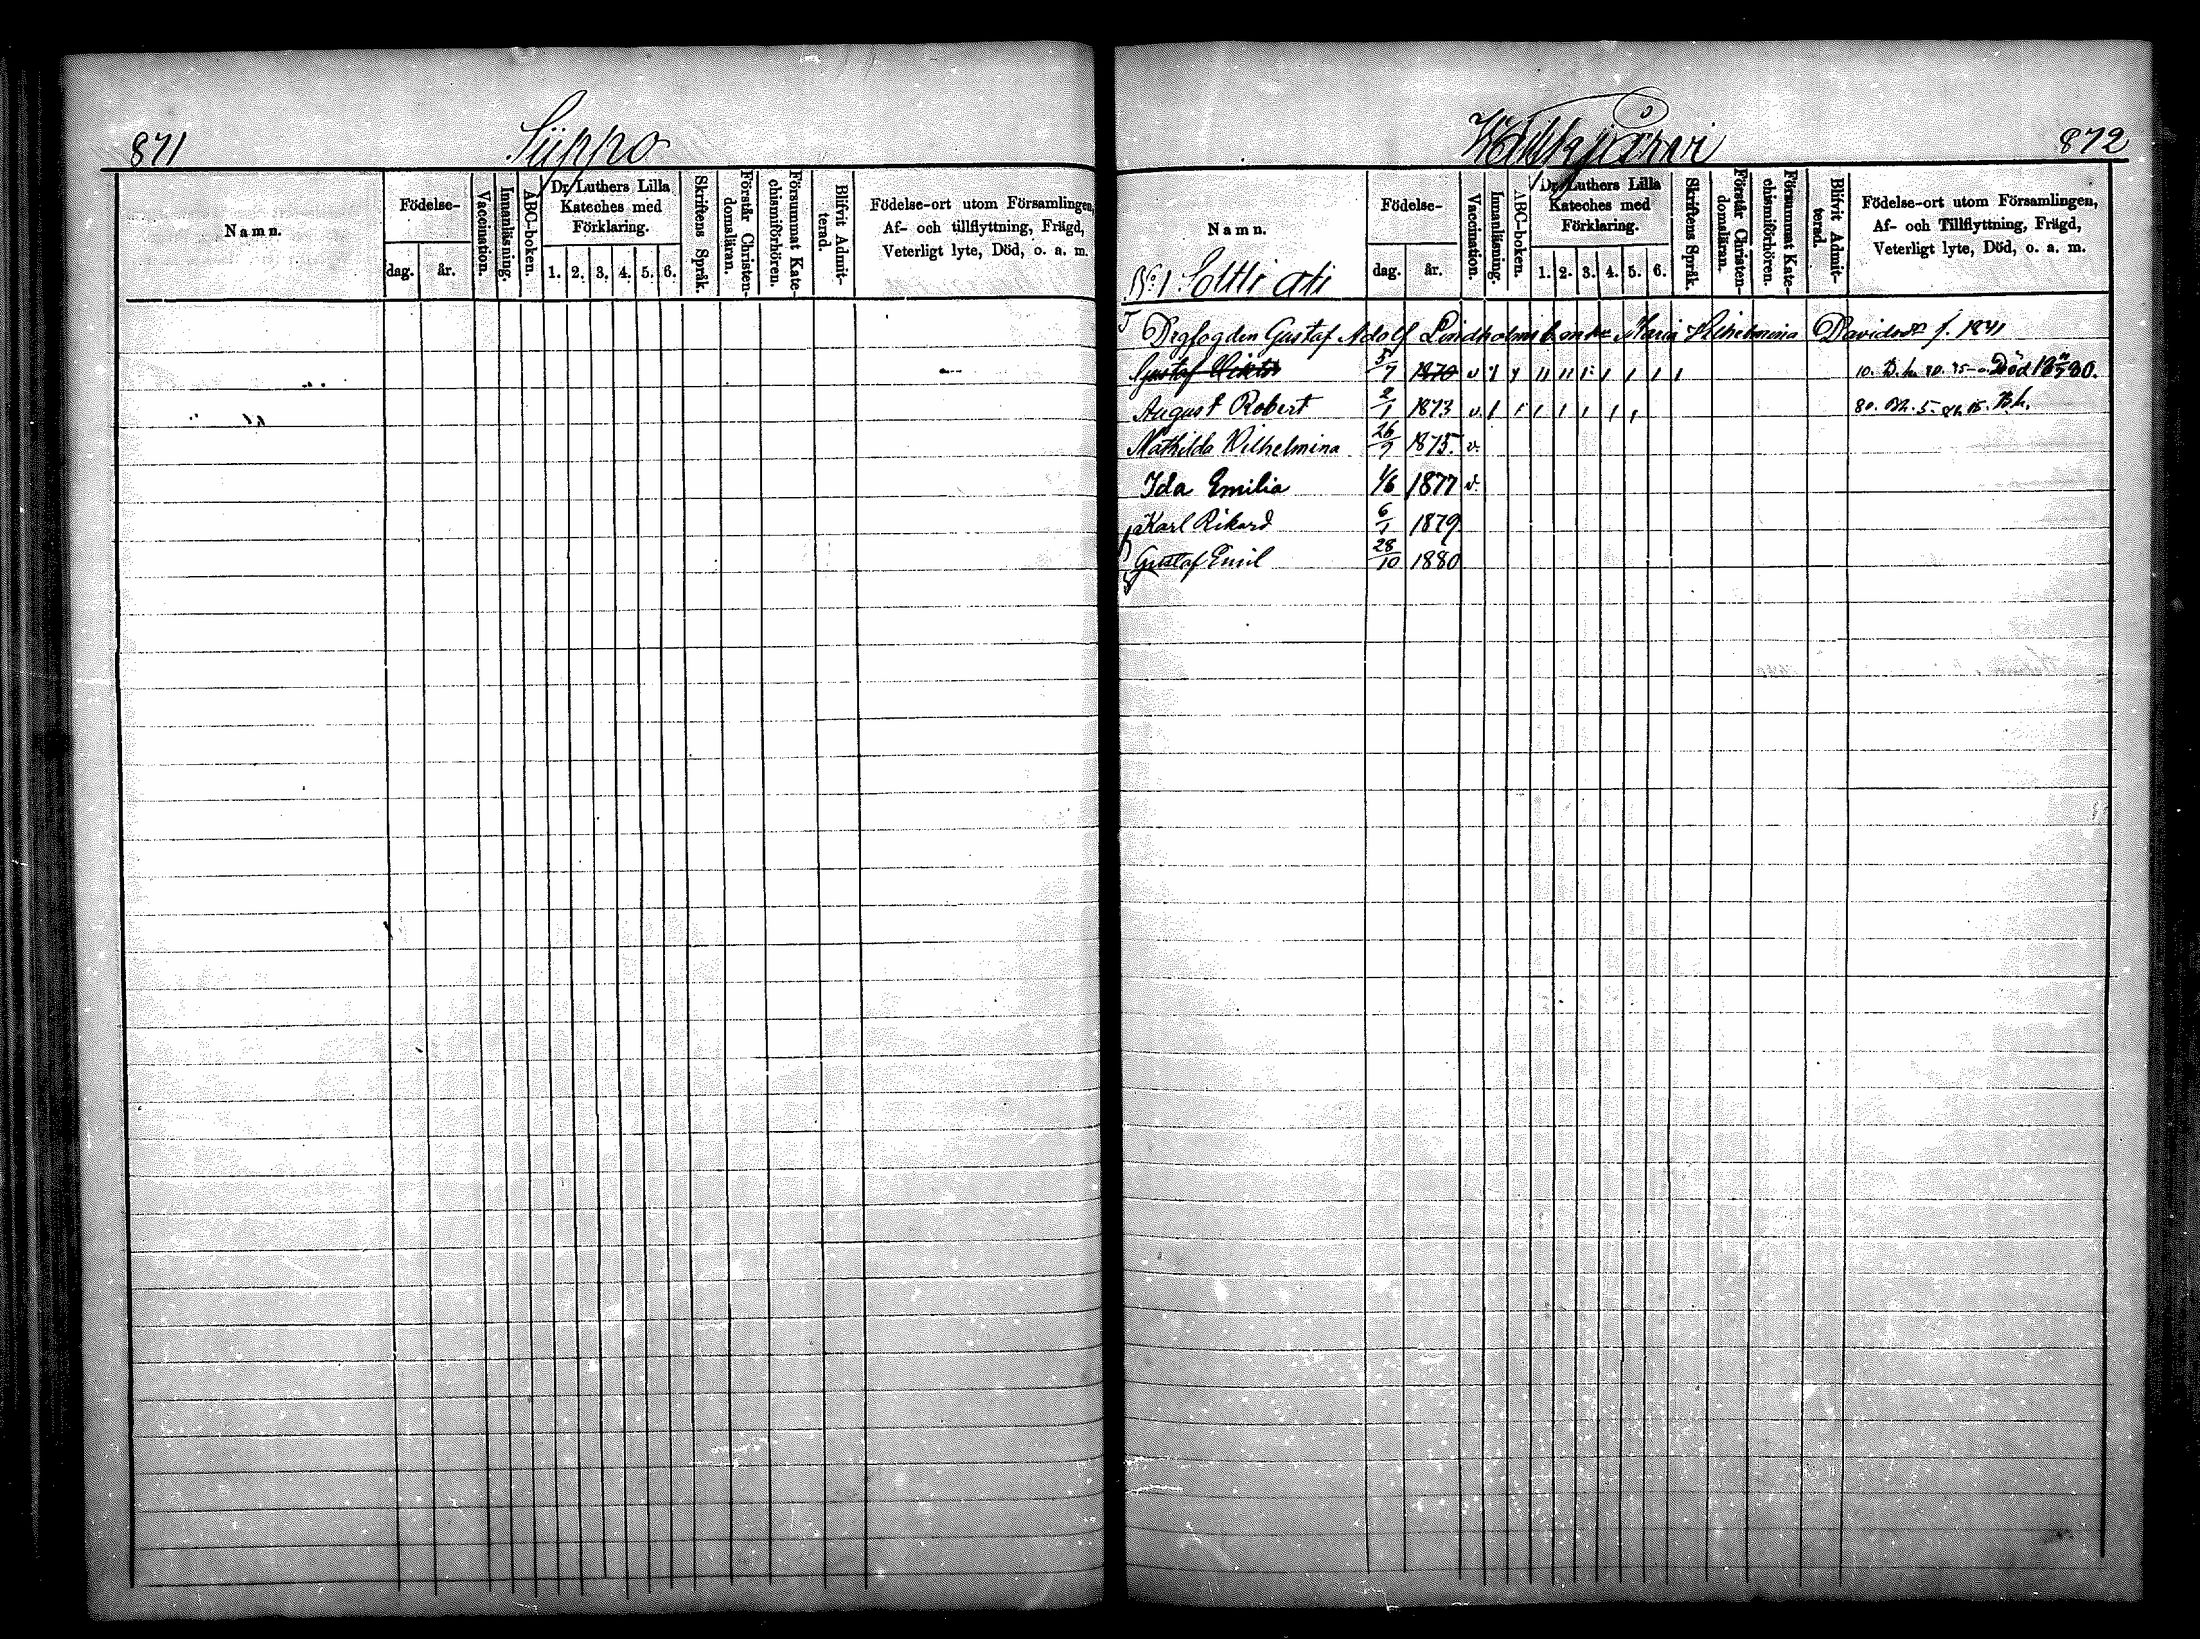 871
Süppo
Namn.
Födelse-
dag.
år.
Vaccination.
Innanläsning.
ABC-boken.
Dr Luthers Lilla
Kateches med
Förklaring.
1. 2. 3. 4. 5. 6.
Skriftens Språk.
Förstår Christen-
domsläran.
Försummat Kate-
chismiförhören.
Blifvit Admit-
terad.
Födelse-ort utom Församlingen,
Af- och tillflyttning, Frägd,
Veterligt lyte, Död, o. a. m.
872
Namn.
No 1
Födelse-
dag.
år.
Vaccination.
Innanläsning.
ABC-boken.
Dr Luthers Lilla
Kateches med
Förklaring.
1. 2. 3. 4. 5. 6.
Skriftens Språk.
Förstår Christen-
domsläran.
Försummat Kate-
chismiförhören.
Blifvit Admit-
terad.
Födelse-ort utom Församlingen,
Af- och Tillflyttning, Frägd,
Veterligt lyte, Död, o. a. m.
Gustaf Adolf Lindholms Maria Wilhelmina Davidsdr f. 1841
Gustaf Viktor 5/7 1870 v Död
August Robert 2/1 1873 v
Mathilda Wilhelmina 26/9 1875. v.
Ida Emilia 1/6 1877 v.
Karl Rikard 6/1 1879
Gustaf Emil 28/10 1880